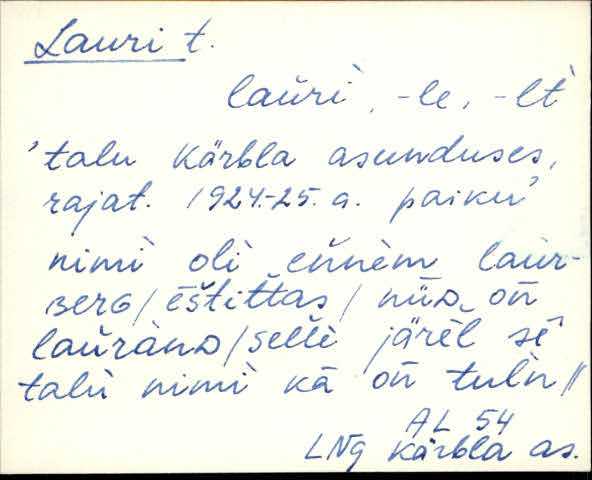 Lauri t.
laŭrì̮, -le, -lt
'talu Kärbla asunduses,
rajat. 1924.-25. a. paiku'
nimi oli eňnem laŭr-
BERG / ēštittas / nüD, oň
laŭranD / sellè järèl sē
talù nimi kā oň tulǹ //
AL 54
LNg Kärbla as.